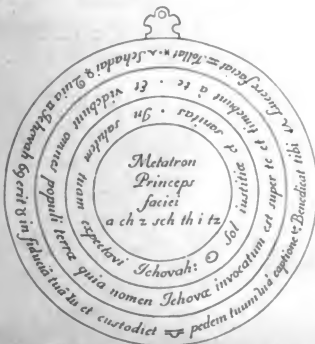 Metatron
Princeps
faciei
a ch z sch th i tz
In salutem tuam expectavi Jehovah: ☉ sol institia et sanitas
Et videbunt omnes populi terræ quia nomen Jehovæ invocatum est super te et timebunt à te
Benedicat tibi Lucere faciat Tollat Schadai Quia Jehovah erit in fiduciâ tuâ et custodiet pedem tuum captione